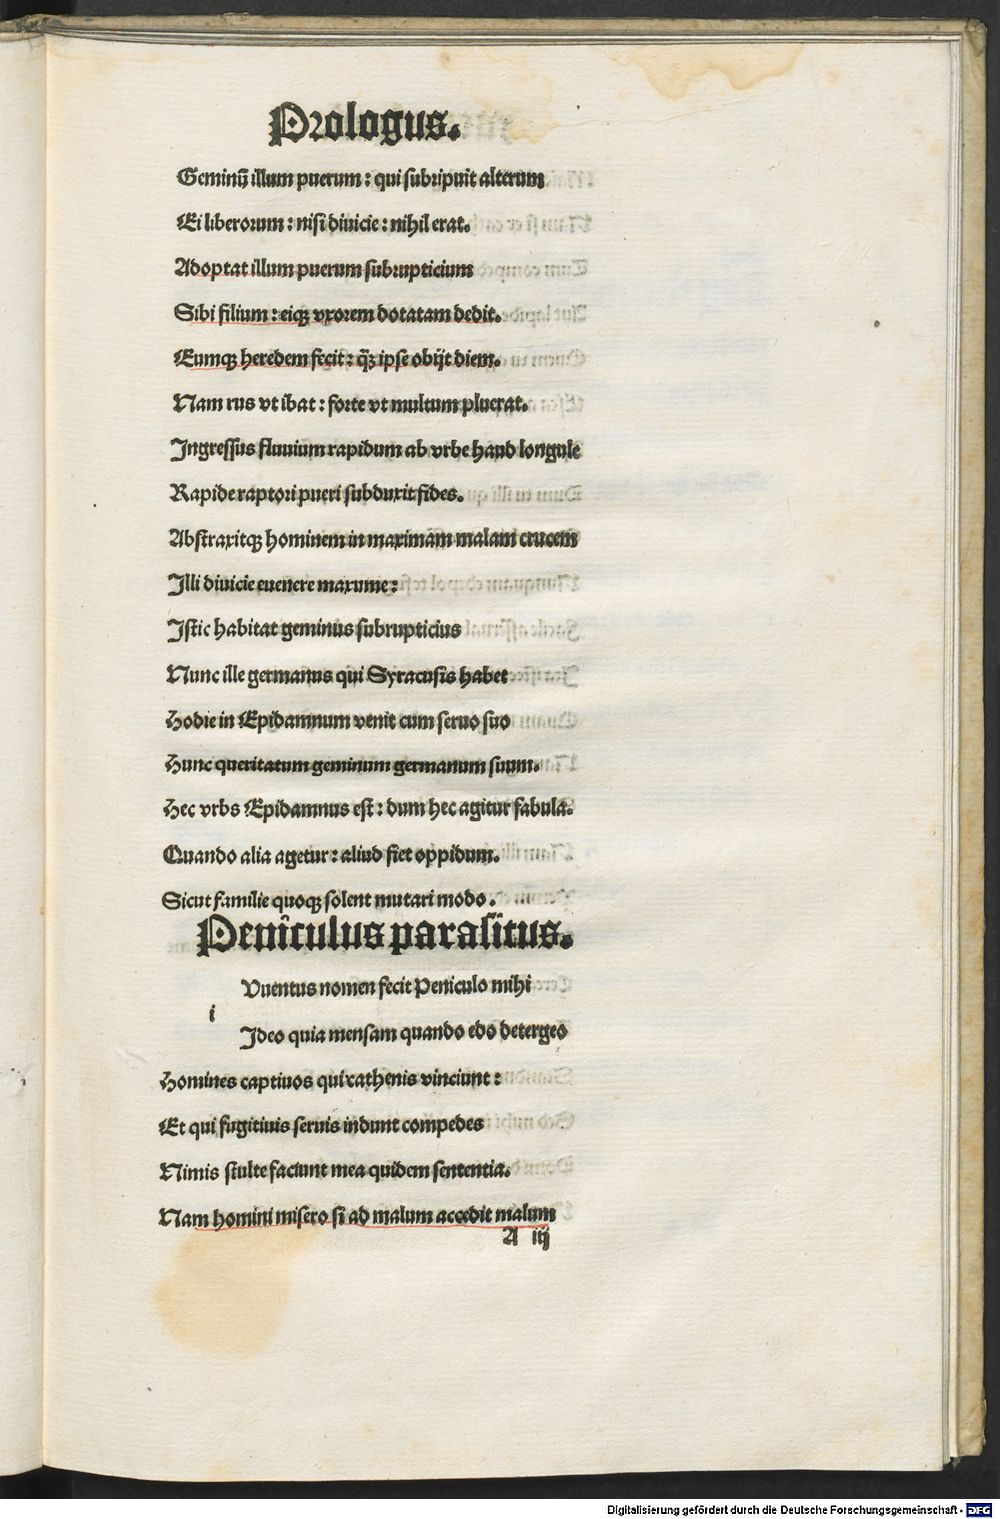 Prologus.
Geminū illum puerum : qui subripuit alterum
Ei liberorum : nisi diuicie : nihil erat.
Adoptat illum puerum subrupticium
Sibi filium : eiqꝫ vxorem dotatam dedit.
Eumqꝫ heredem fecit : qꝫ̄ ipse obijt diem.
Nam rus vt ibat : forte vt multum pluerat.
Ingressus fluuium rapidum ab vrbe haud longule
Rapide raptori pueri subduxit fides.
Abstraxitqꝫ hominem in maximam malam crucem
Illi diuicie euenere maxume :
Istic habitat geminus subrupticius
Nunc ille germanus qui Syracusis habet
Hodie in Epidamnum venit cum seruo suo
Hunc queritatum geminum germanum suum.
Hec vrbs Epidamnus est : dum hec agitur fabula.
Quando alia agetur : aliud fiet oppidum.
Sicut familie quoqꝫ solent mutari modo.
Peniculus parasitus.
Vuentus nomen fecit Peniculo mihi
i
Ideo quia mensam quando edo detergeo
Homines captiuos qui cathenis vinciunt :
Et qui fugitiuis seruis indunt compedes
Nimis stulte faciunt mea quidem sententia.
Nam homini misero si ad malum accedit malum
A iij
Digitalisierung gefördert durch die Deutsche Forschungsgemeinschaft - DFG